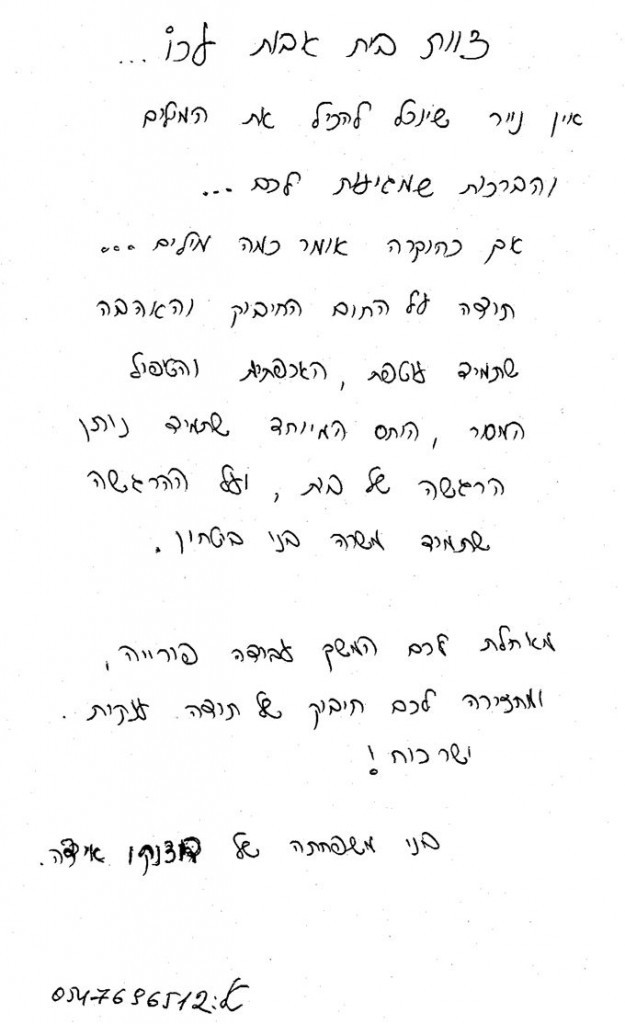 צוות בית אבות עכו ...
אין נייר שיוכל להכיל את המילים
והברכות שמגיעות לכם ...
אך כהוקרה אומר כמה מילים ...
תודה על החום החיבוק והאהבה
שתמיד עוטפת, האכפתית והטפול
המסור, היחס המיוחד שתמיד נותן
הרגשה של בית, ועל ההרגשה
שתמיד משרה בנו ביטחון.
מאחלת לכם המשך עבודה פורייה,
ומחזירה לכם חיבוק של תודה ענקית.
ישר כוח!
בני משפחתה של אידה.
א: 0547696512